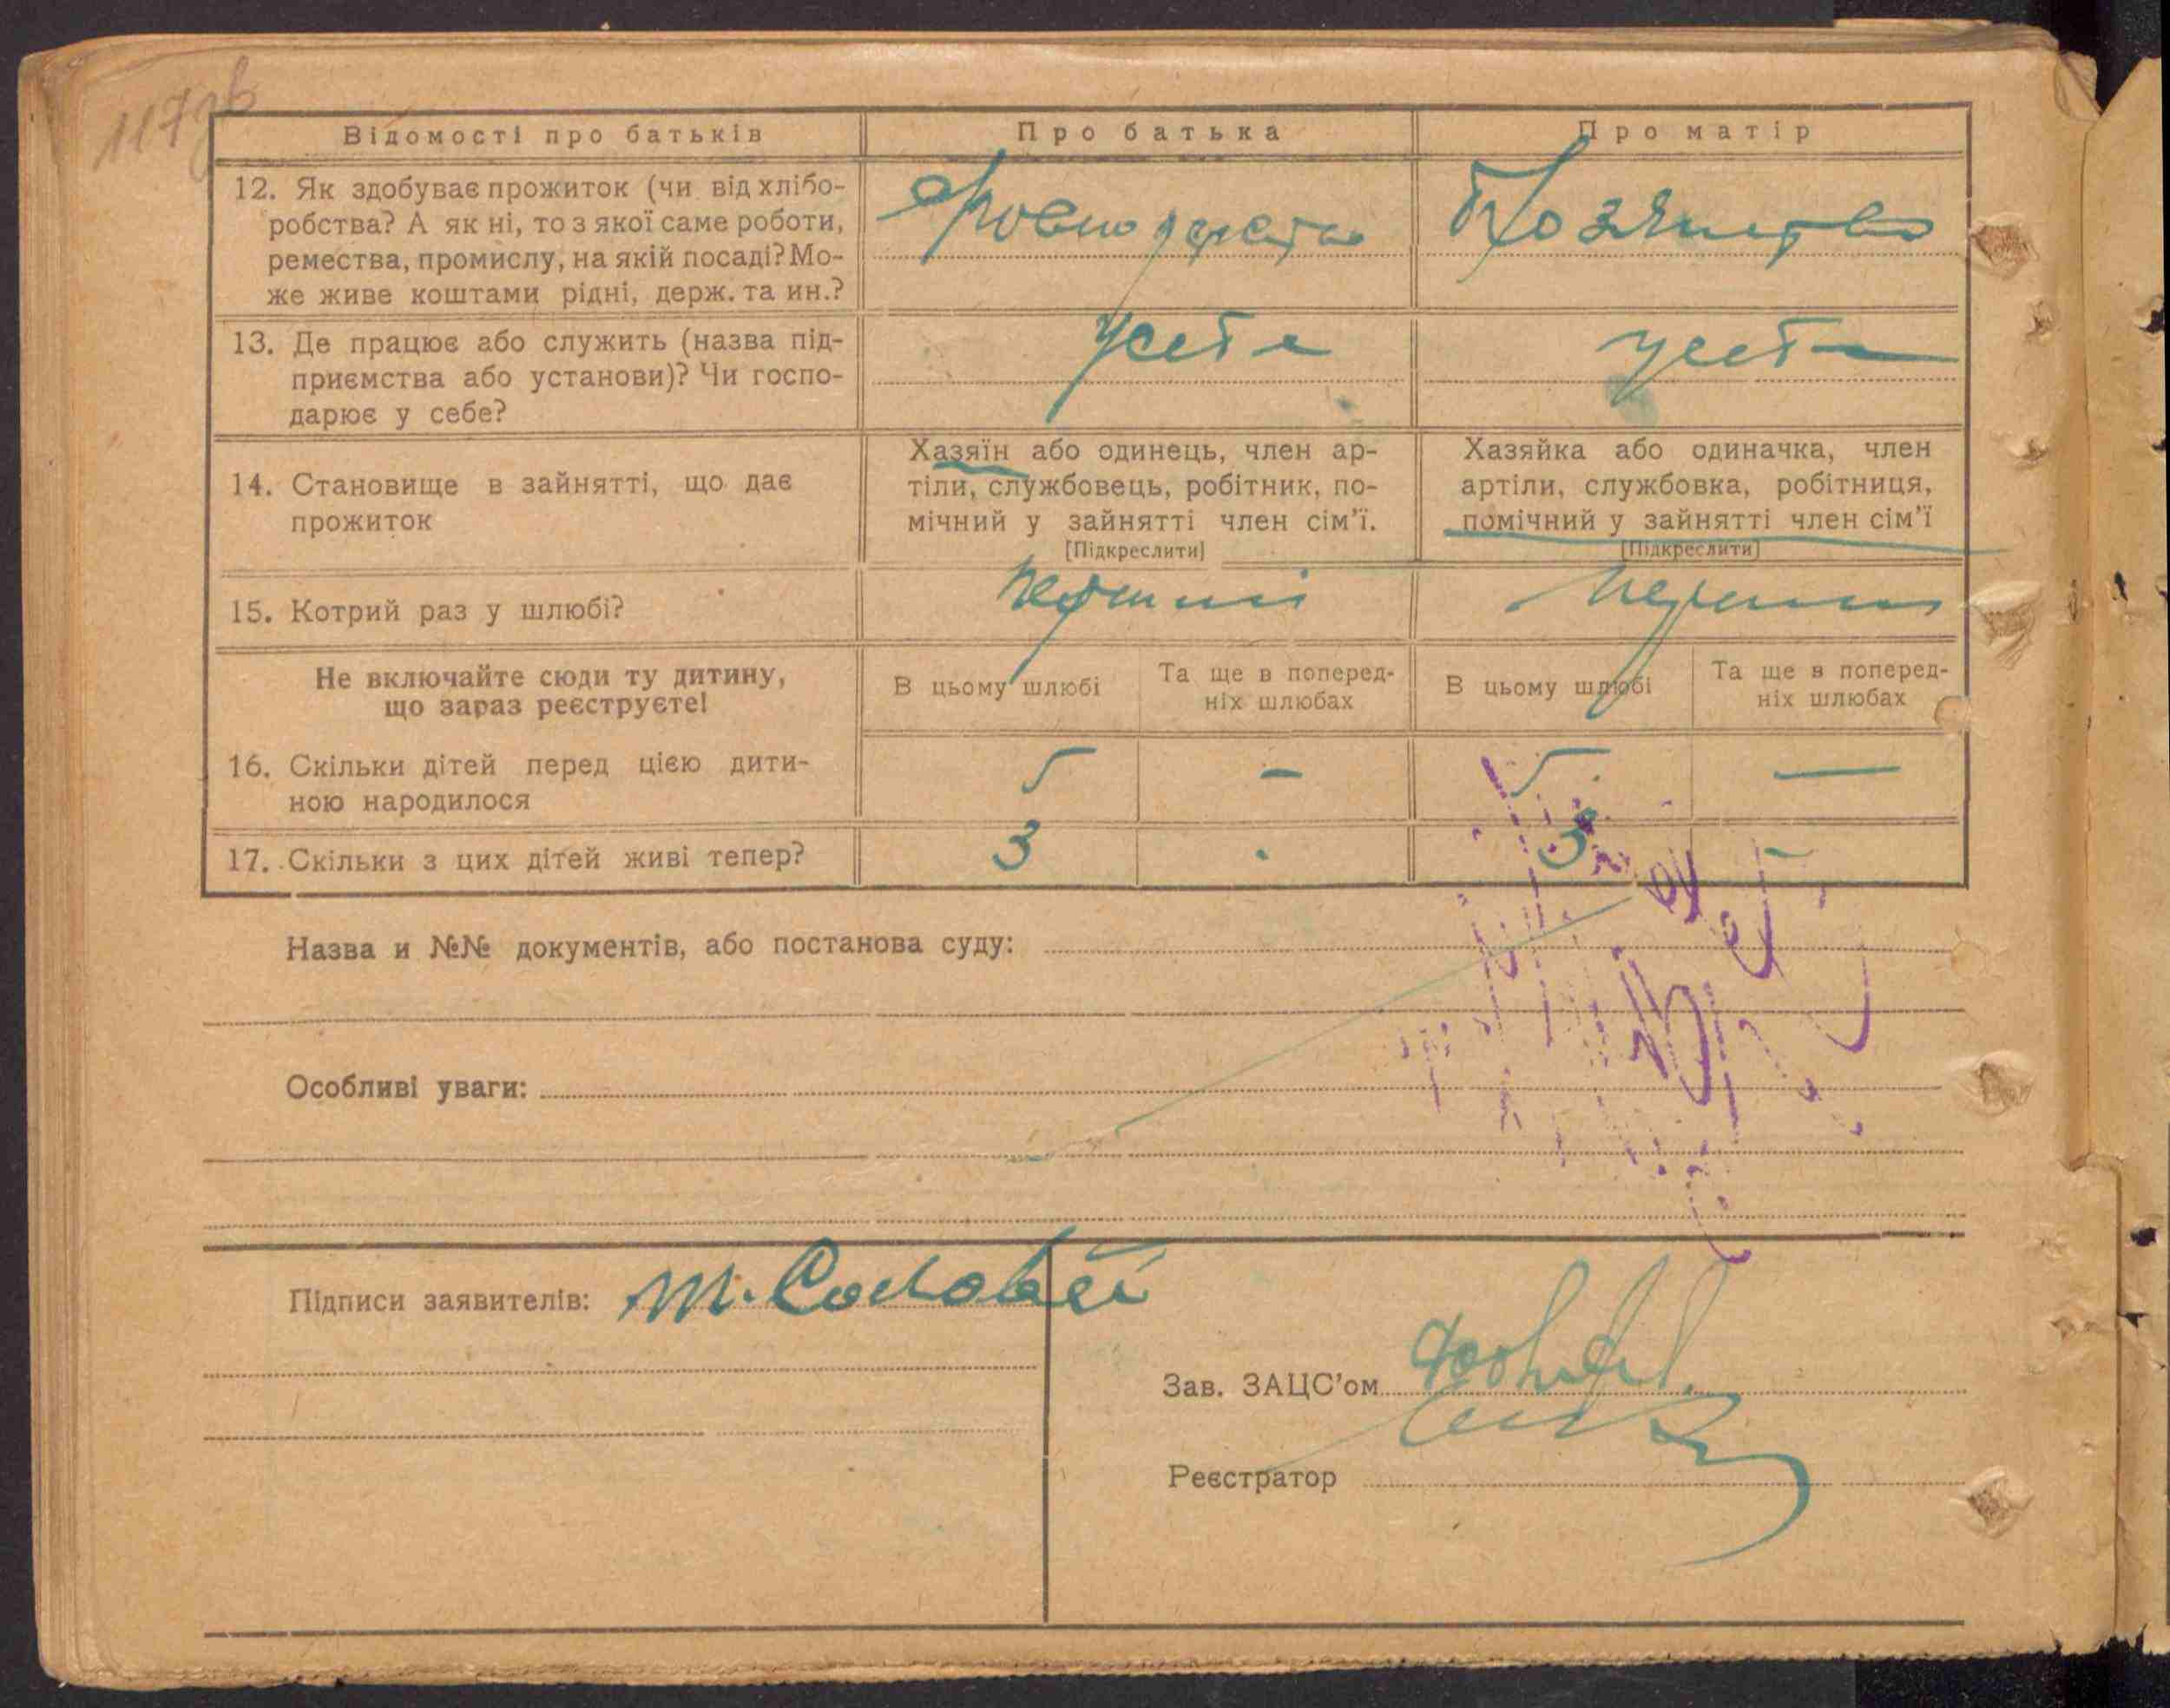 117зв
Відомості про батьків
Про батька
Про матір
12. Як здобуває прожиток (чи від хлібо-
робства? А як ні, то з якої саме роботи,
ремества, промислу, на якій посаді? Мо-
же живе коштами рідні, держ. та ин.?
13. Де працює або служить (назва під-
приємства або установи)? Чи госпо-
дарює у себе?
у себе
у себе
14. Становище в зайнятті, що дає
прожиток
Хазяїн або одинець, член ар-
тіли, службовець, робітник, по-
мічний у зайнятті член сім'ї.
[Підкреслити]
Хазяйка або одиначка, член
артіли, службовка, робітниця,
помічний у зайнятті член сім'ї
[Підкреслити]
15. Котрий раз у шлюбі?
перший
перший
Не включайте сюди ту дитину,
що зараз реєструєте!
В цьому шлюбі
Та ще в поперед-
ніх шлюбах
В цьому шлюбі
Та ще в поперед-
ніх шлюбах
16. Скільки дітей перед цією дити-
ною народилося
5
-
5
—
17. Скільки з цих дітей живі тепер?
3
.
3
-
Назва и №№ документів, або постанова суду:
Особливі уваги:
Підписи заявителів: М. Соловей
Зав. ЗАЦС'ом
Реєстратор